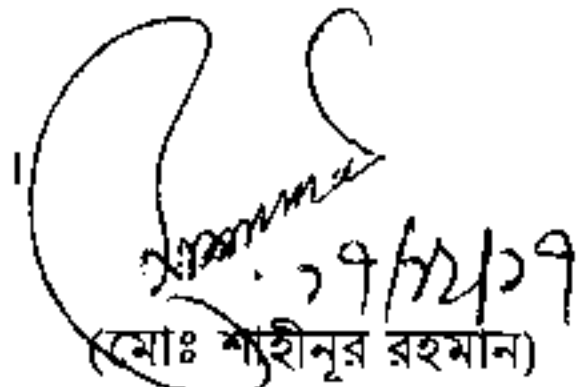 ১৭/১২/১৭
(মোঃ শাহীনূর রহমান)